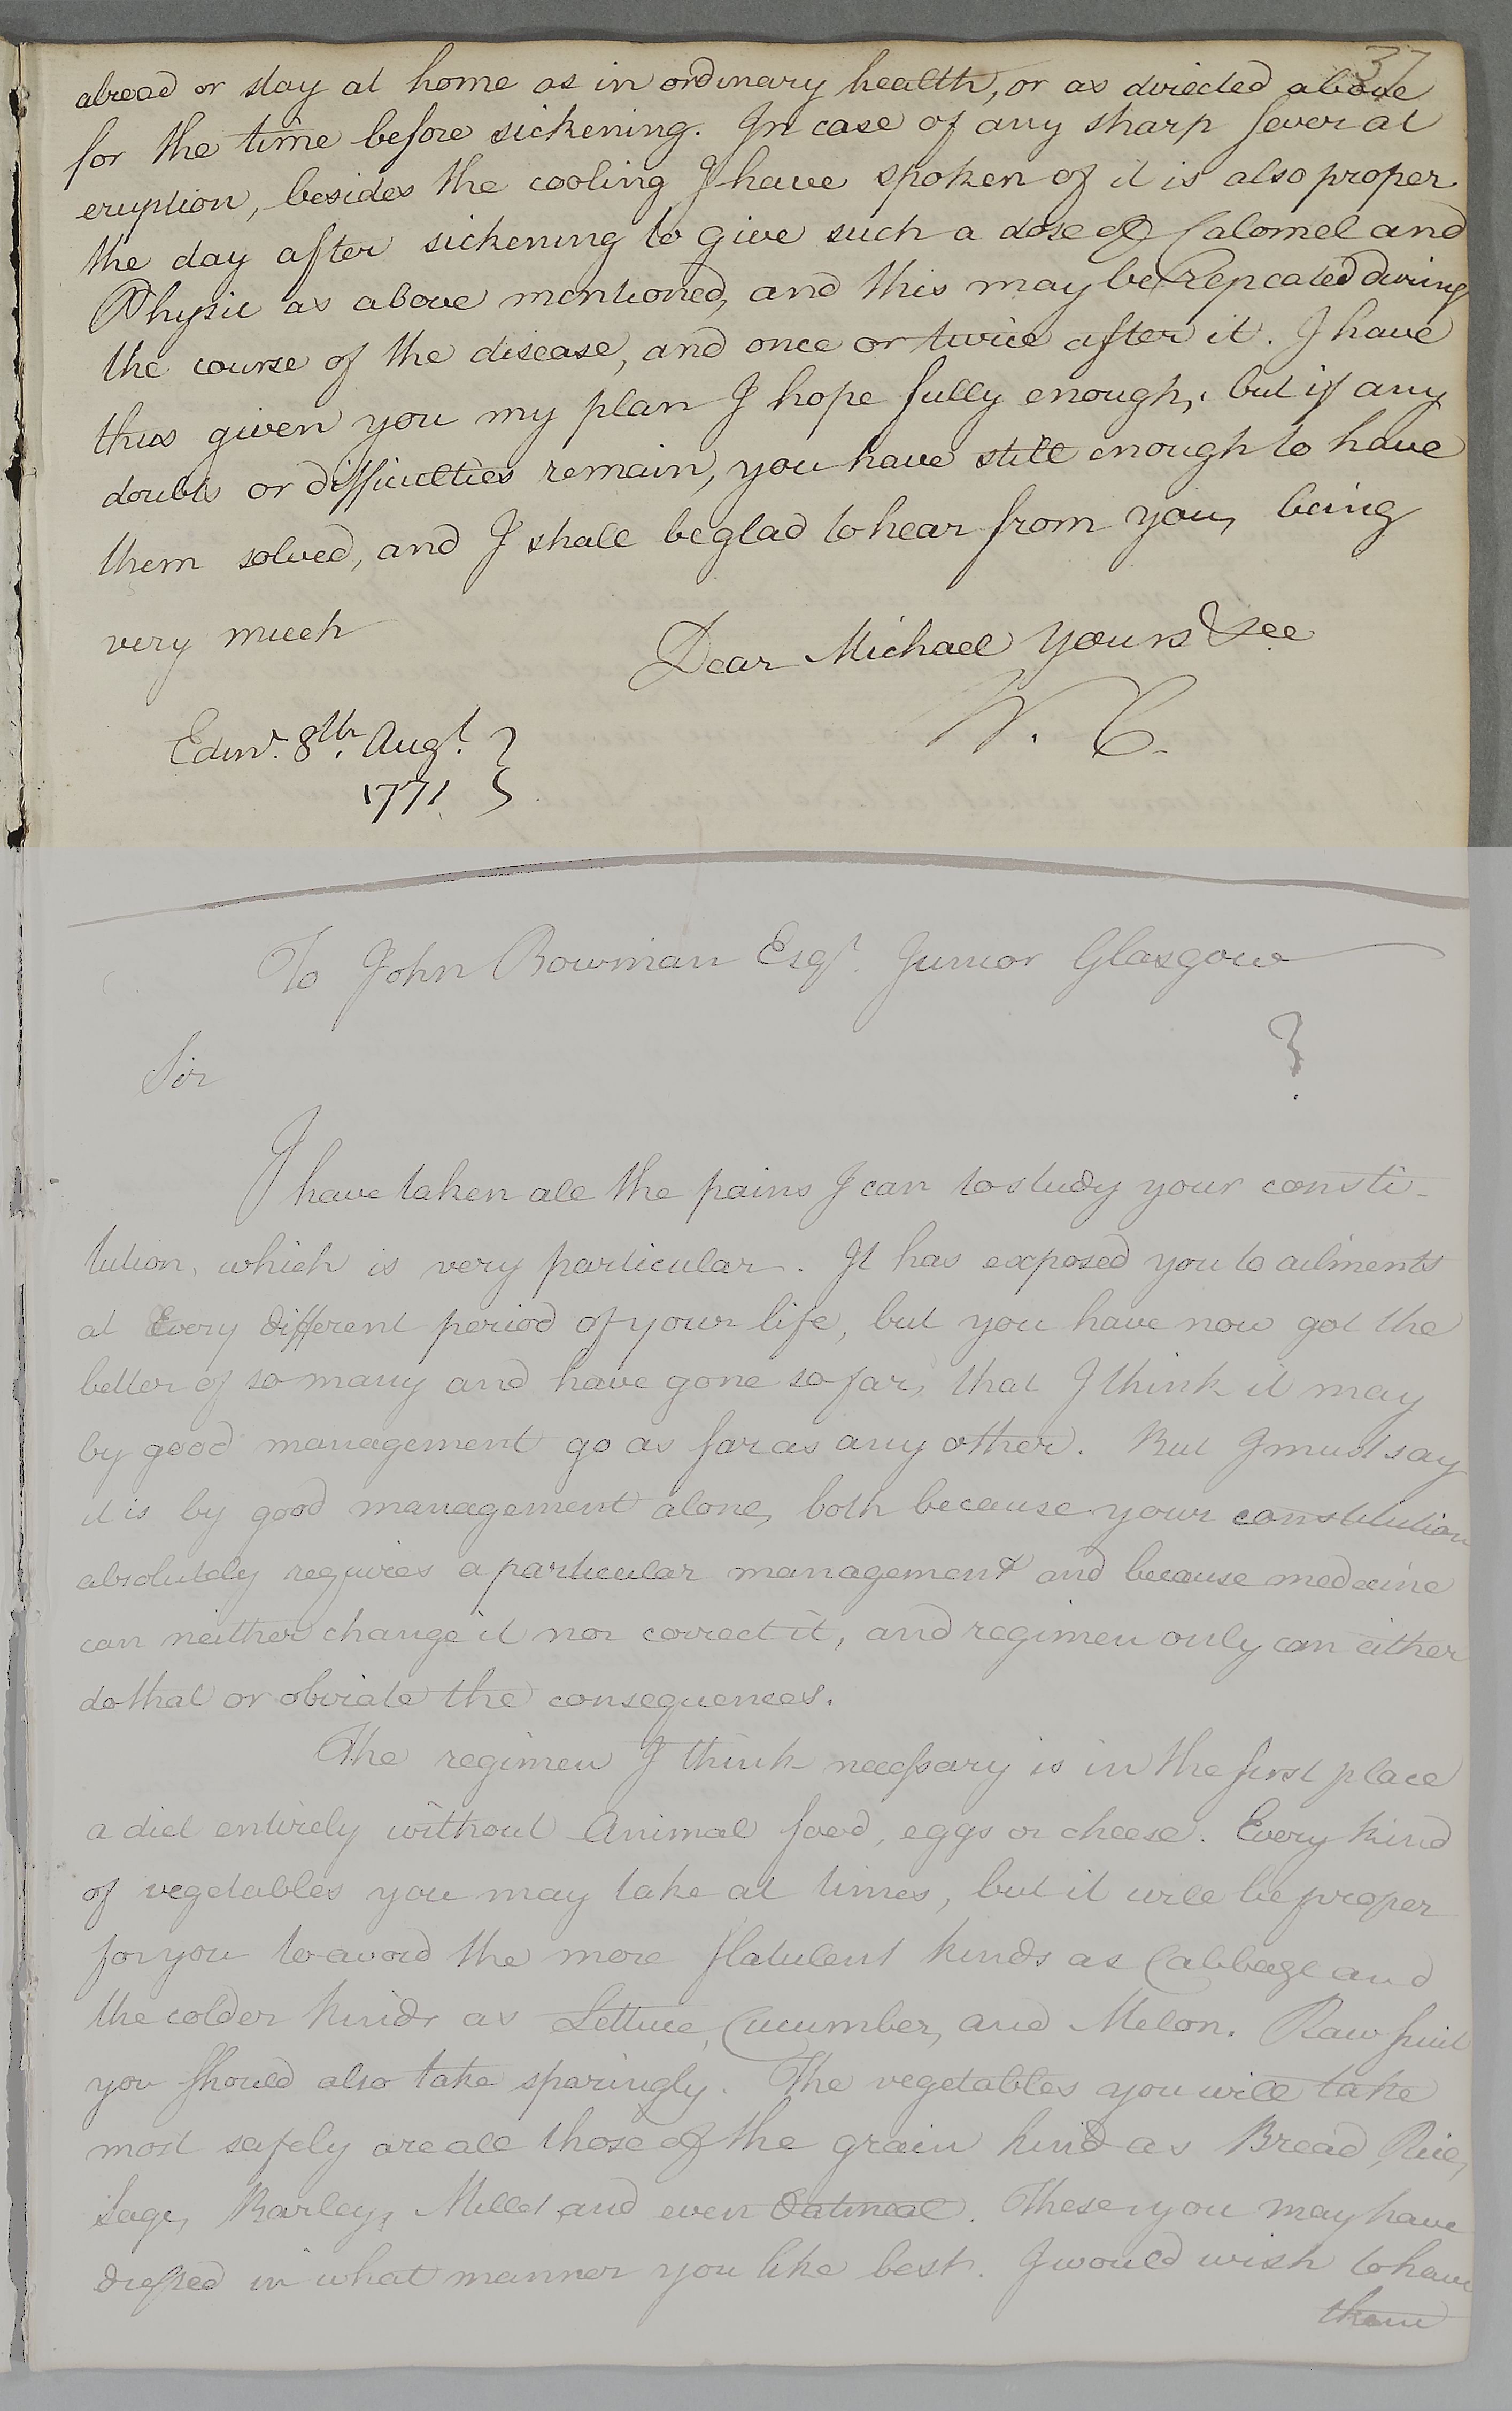 37
abroad or stay at home as in ordinary health, or as directed above
for the time before sickening. In case of any sharp fever at
eruption, besides the cooling I have spoken of it is also proper
the day after sickening to give such a dose of Calomel and
Physic as above mentioned, and this may be repeated during
the course of the disease, and once or twice after it. I have
thus given you my plan I hope fully enough, but if any
doubts or difficulties remain, you have still enough to have
them solved, and I shall be glad to hear from you, being
very much
Dear Michael Yours &c
W. C.
Edinr. 8th. Augt.
1771
To John Bowman Esqr. Junior Glasgow
?
Sir
I have taken all the pains I can to study your consti-
tution, which is very particular. It has exposed you to ailments
at Every different period of your life, but you have now got the
better of so many and have gone so far, that I think it may
by good management go as far as any other. But I must say
it is by good management alone, both because your constitution
absolutely requires a particular management and because medecine
can neither change it nor correct it, and regimen only can either
do that or obviate the consequences.
The regimen I think necessary is in the first place
a diet entirely without Animal food, eggs or cheese. Every kind
of vegetables you may take at times, but it will be proper
for you to avoid the more flatulent kinds as Cabbage and
the colder kinds as Lettuce, Cucumber, and Melon. Raw fruit
you should also take sparingly. The vegetables you will take
most safely are all those of the grain kind as Bread, Rice,
Sago, Barley, Millet and even Oatmeal. These you may have
dressed in what manner you like best. I would wish to have
them